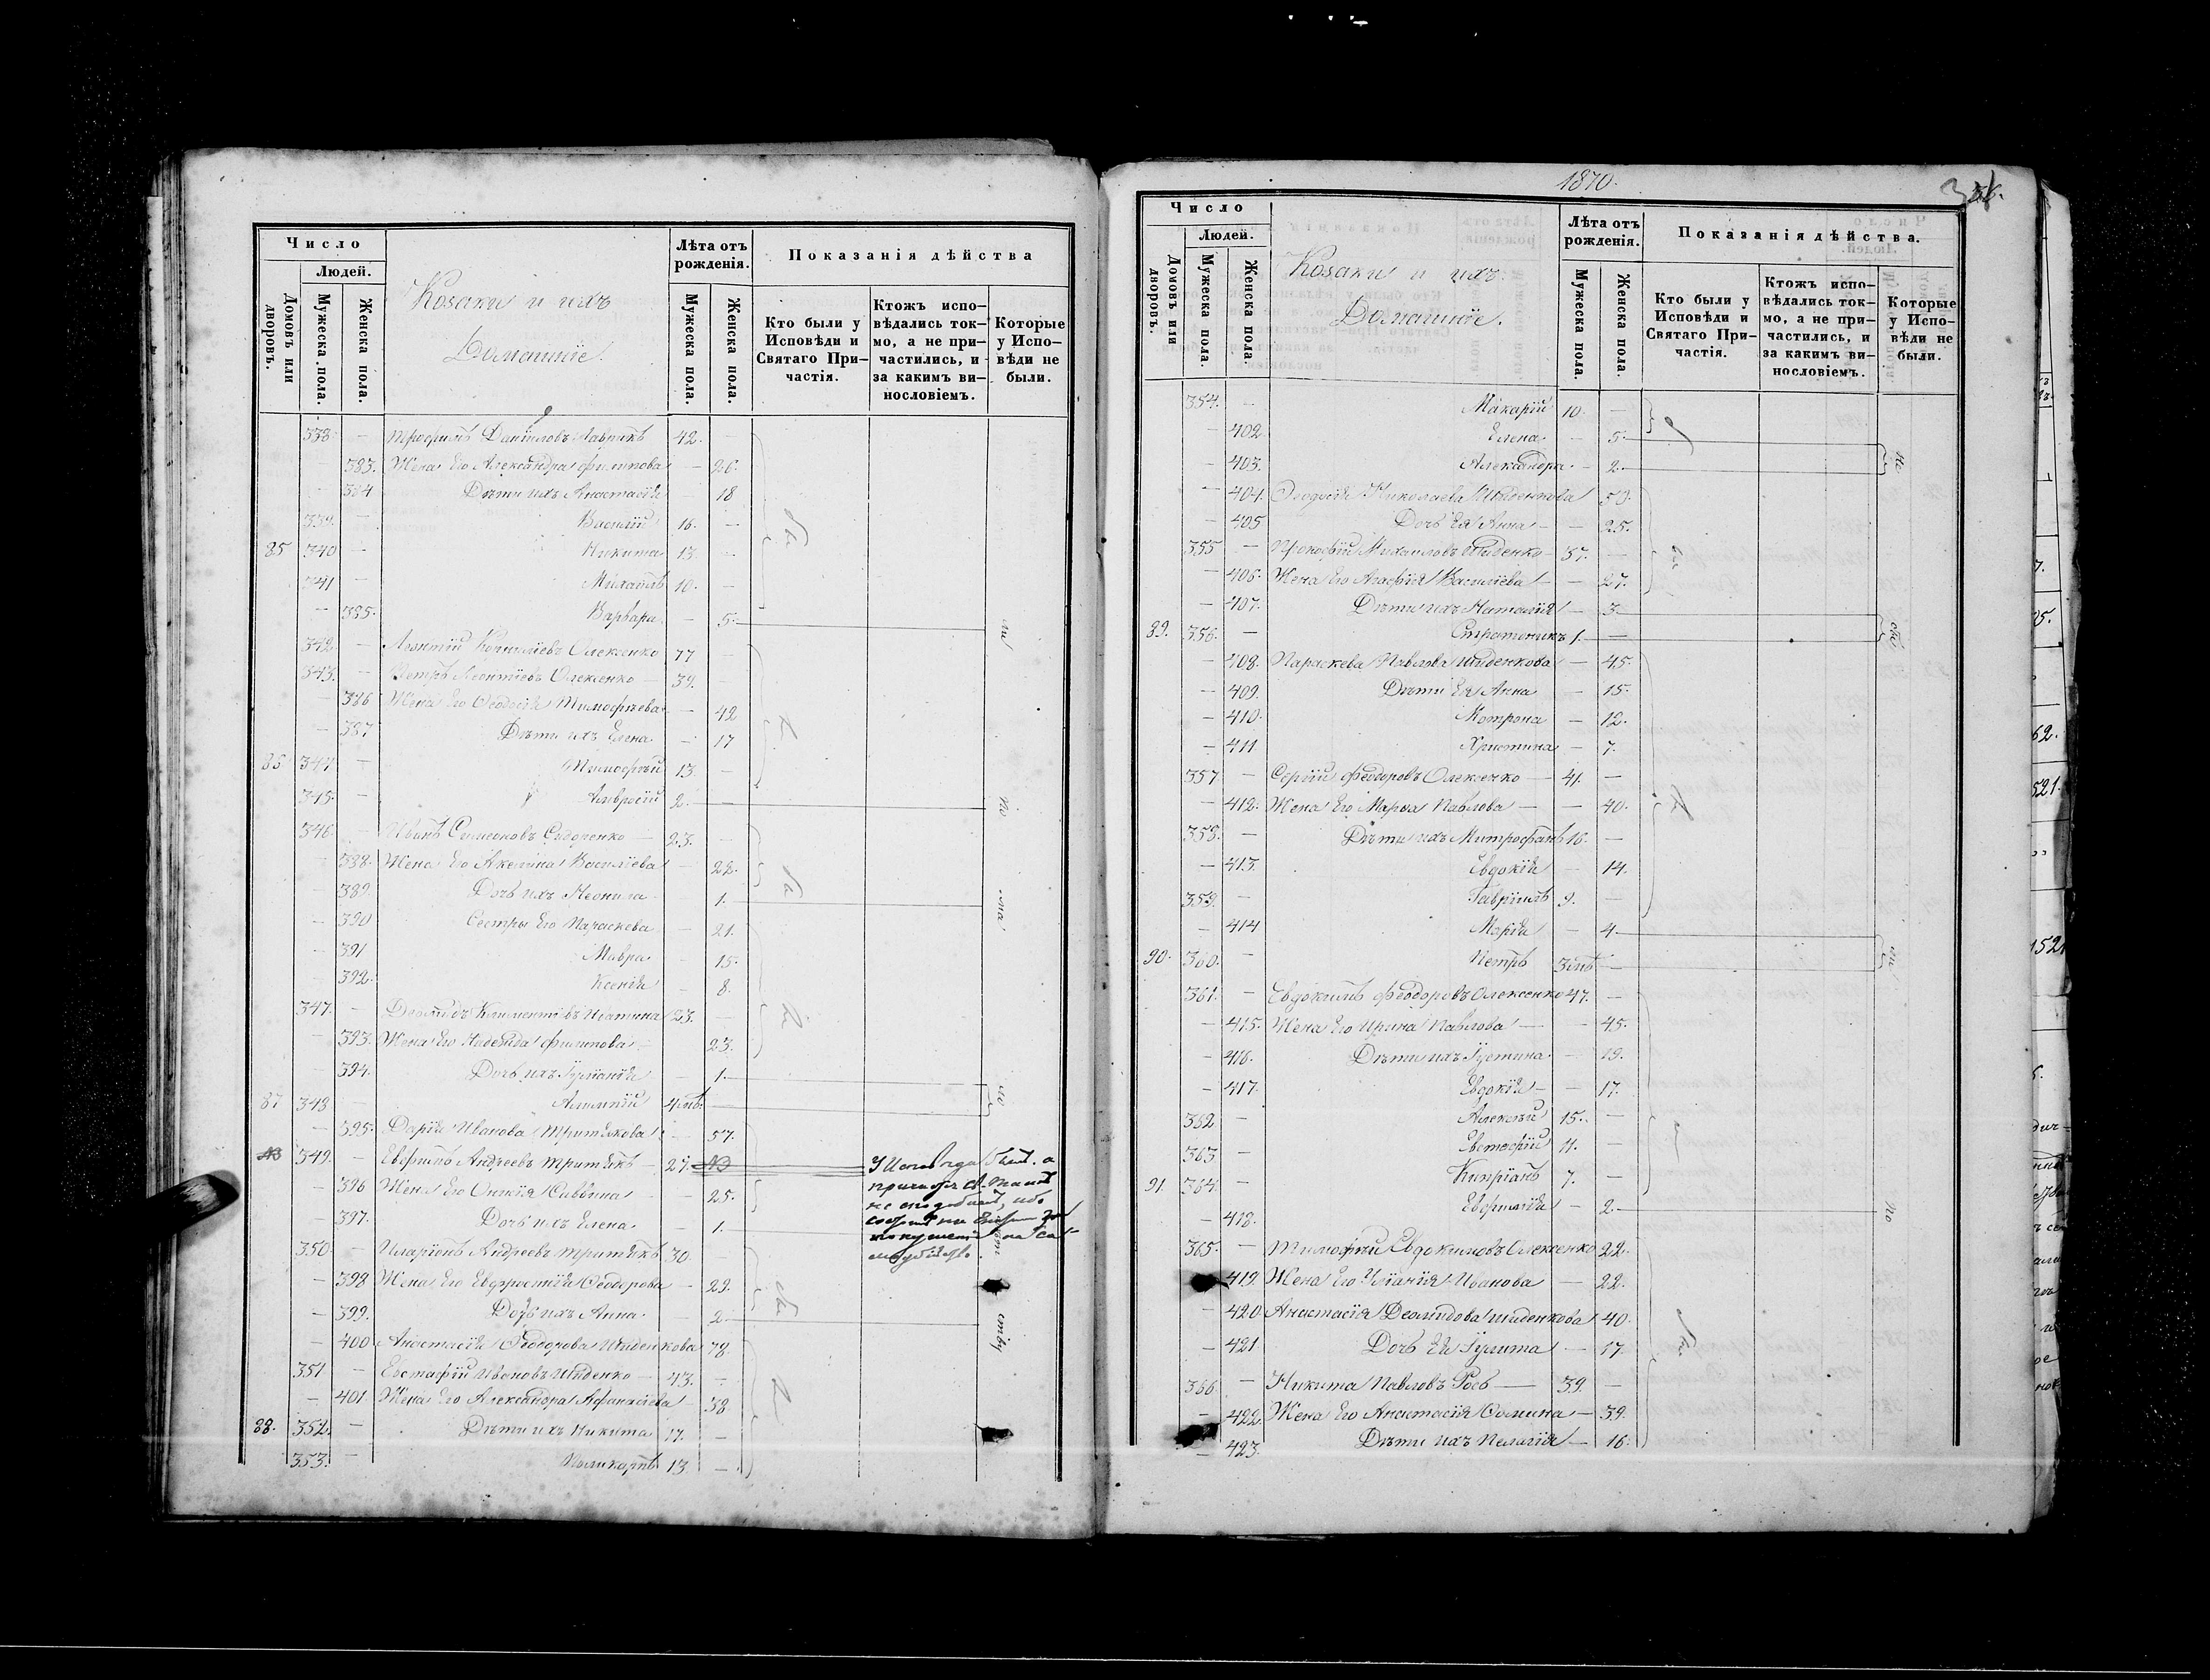 Число
Людей.
Домовъ или дворовъ.
Мужеска пола.
Женска пола.
Козаки и ихъ
Домашніе.
Лѣта отъ рожденія.
Мужеска пола.
Женска пола.
Показанія дѣйства
Кто были у Исповѣди и Святаго При-частія.
Ктожъ испо-вѣдались ток-мо, а не при-частились, и за какимъ ви-нословіемъ.
Которые у Испо-вѣди не были.
338. — Трофимъ Даніиловъ Лаврикъ 42. —
— 383. Жена Его Александра Филипова — 26.
— 384 Дѣти ихъ Анастасія — 18
339. — Василій 16. —
85 340 — Никита 13. —
341 — Михаилъ 10. —
— 385. Варвара — 5.
342. — Леонтій Корниліевъ Олексенко 77 —
343. — Петръ Леонтіевъ Олексенко — 39. —
— 386 Жена Его Ѳеодосія Тимофѣева — 42
— 387 Дѣти ихъ Елена — 17
86 344. — Тимофѣй 13. —
345. — Амвросій 2. —
346. — Иванъ Симеоновъ Сидоренко — 23. —
— 388. Жена Его Акелина Василіева — 22.
— 389 Дочь ихъ Неонила — 1.
— 390 Сестры Его Параскева — 21.
— 391 Мавра — 15.
— 392. Ксенія — 8.
347. — Діомидъ Климентіевъ 23. —
— 393. Жена Его Надежда Филипова — 23.
— 394. Дочь ихъ Іуліанія — 1.
87 348 — Алимпій 4 мѣ. —
— 395. Дарія Иванова Тритякова — 57.
349. — Евфимъ Андреевъ Тритякъ — 27.
У Исповѣди былъ, а
не сподобленъ, ибо
— 396 Жена Его Саввина — 25.
— 397. Дочь ихъ Елена — 1.
350. — Иларіонъ Андреевъ Тритякъ 30. —
— 398 Жена Его Евфросинія Ѳеодорова — 29.
— 399. Дочь ихъ Анна — 2.
— 400 Анастасія Ѳеодорова Шиденкова 78
351 — Евстафій Ивановъ Шиденко — 43. —
— 401 Жена Его Александра Афанасіева 38
88. 352. — Дѣти ихъ Никита 17. —
353. — Поликарпъ 13. —
1870.
36.
Число
Людей.
Домовъ или дворовъ.
Мужеска пола.
Женска пола.
Козаки и ихъ
Домашніе.
Лѣта отъ рожденія.
Мужеска пола.
Женска пола.
Показанія дѣйства.
Кто были у Исповѣди и Святаго При-частія.
Ктожъ испо-вѣдались ток-мо, а не при-частились, и за какимъ ви-нословіемъ.
Которые у Испо-вѣди не были.
354. — Макарій 10. —
— 402 Елена — 5.
— 403. Александра — 2.
— 404. Ѳеодосія Николаева Шиденкова 53.
— 405 Дочь Ея Анна — 25.
355 — Прокофій Михаиловъ Шиденко 37. —
— 406. Жена Его Агафія Василіева — 27.
— 407. Дѣти ихъ Наталія — 3.
89. 356. — Стратоникъ 1. —
— 408. Параскева Павлова Шиденкова — 45.
— 409. Дѣти Ея Анна — 15.
— 410. Мотрона — 12.
— 411 Христина — 7.
357 — Сергій Феодоровъ Олексенко — 41. —
— 412. Жена Его Марѳа Павлова — 40.
358. — Дѣти ихъ Митрофанъ 16. —
— 413. Евдокія — 14.
359. — Гавріилъ 9. —
— 414 Марія — 4.
90. 360. — Петръ 3 мѣ. —
361. — Евдокимъ Феодоровъ Олексенко 47. —
— 415. Жена Его Ирина Павлова — 45.
— 416. Дѣти ихъ Іустина — 19.
— 417 Евдокія — 17.
362 — Алексѣй 15. —
363. — Евстафій 11. —
91. 364. — Кипріанъ 7. —
— 418. Евфимія — 2.
365. — Тимофѣй Евдокимовъ Олексенко 22.
419. Жена Его Уліанія Иванова — 22.
— 420 Анастасія Деомидова Шиденкова 40.
— 421 Дочь Ея Іулита — 17.
366. — Никита Павловъ Ровъ — 39. —
— 422. Жена Его Анастасія Ѳомина — 39.
— 423. Дѣти ихъ Пелагія — 16.